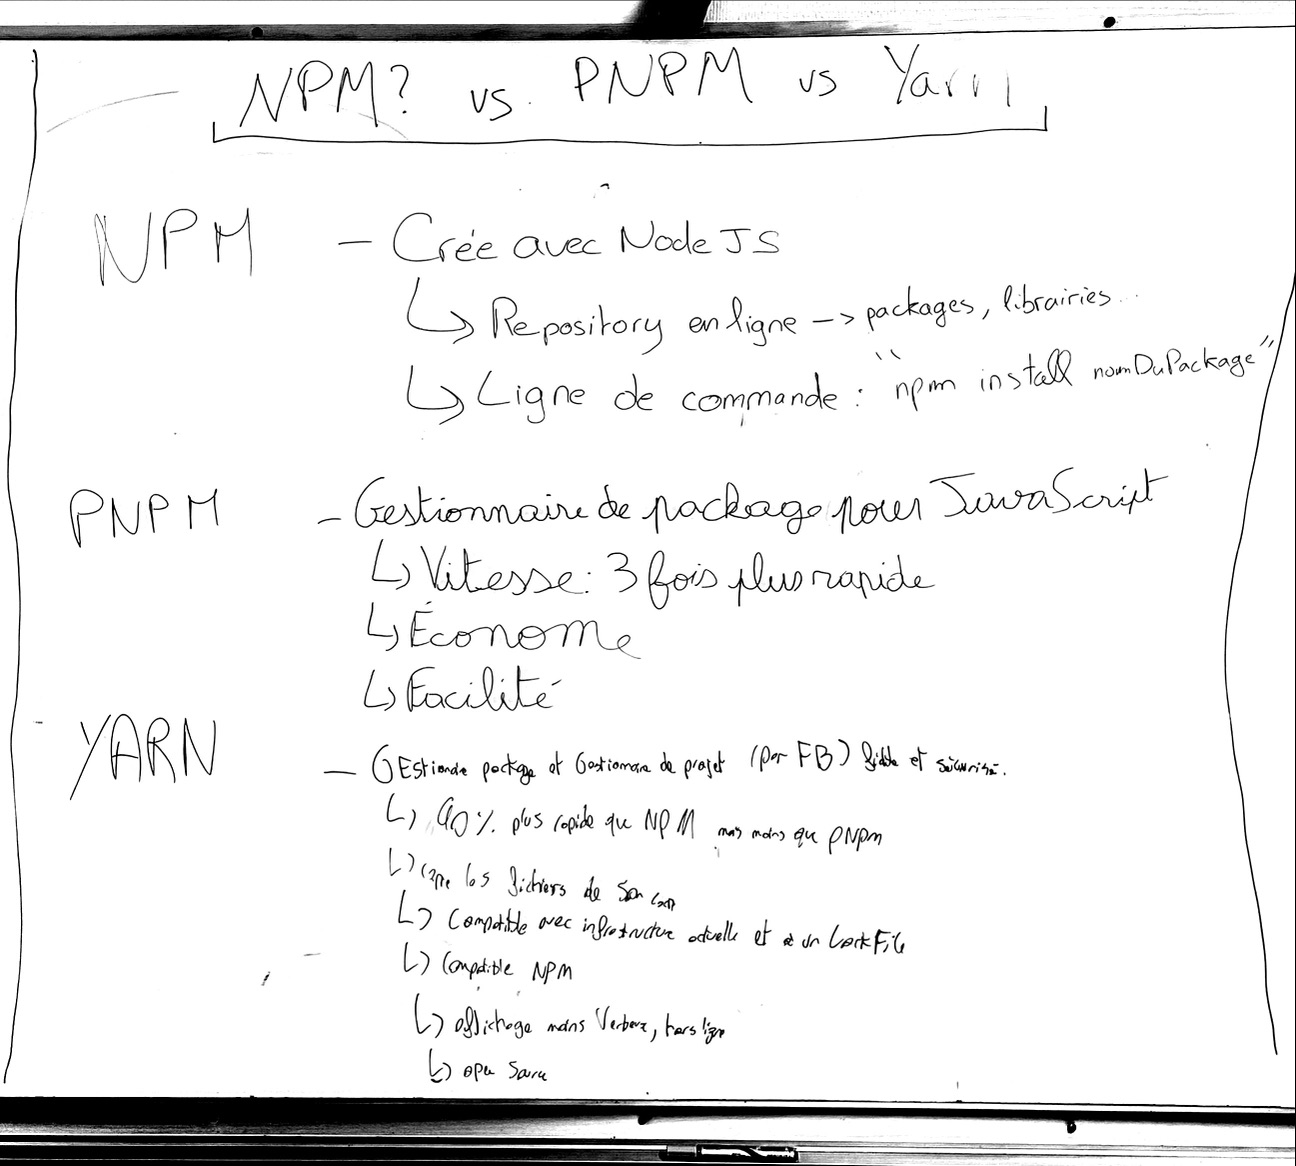 NPM? vs. PNPM vs Yarn
NPM
- Crée avec Node JS
↳ Repository en ligne -> packages, librairies...
↳ Ligne de commande : "npm install nomDuPackage"
PNPM
- Gestionnaire de package pour JavaScript
↳ Vitesse : 3 fois plus rapide
↳ Économe
↳ Facilité
YARN
- package et Gestionnaire de projet (par FB) fiable et sécurisé.
↳ 40% plus rapide que NPM mais moins que PNPM
↳ les fichiers de son
↳ Compatible avec infrastructure actuelle et a un LockFile
↳ Compatible NPM
↳ affichage moins Verbeux, hors ligne
↳ open source